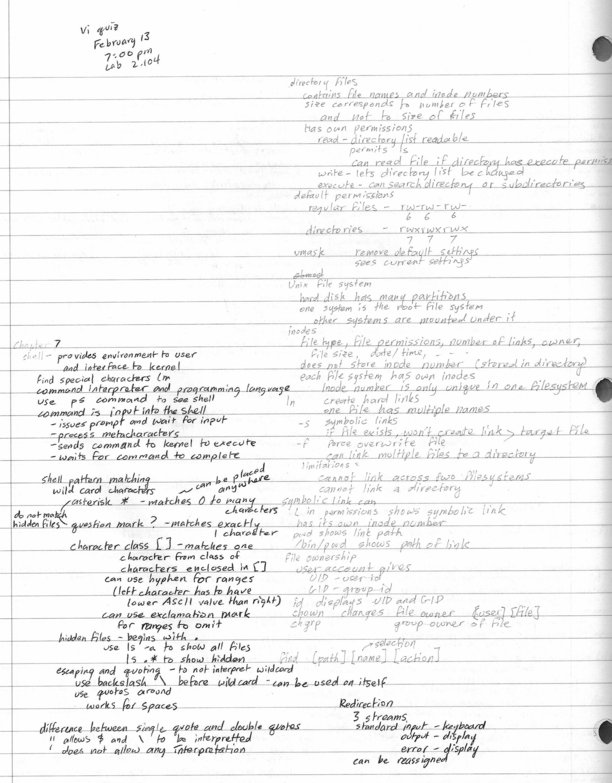 Vi quiz
February 13
7:00 pm
Lab 2.104
directory files
contains file names and inode numbers
size corresponds to number of files
and not to size of files
has own permissions
read - directory list readable
permits ls
can read file if directory has execute permiss
write - lets directory list be changed
execute - can search directory or subdirectories
default permissions
regular files - rw-rw-rw-
6 6 6
directories - rwxrwxrwx
7 7 7
umask remove default settings
sees current settings
chmod
Unix file system
hard disk has many partitions
one system is the root file system
other systems are mounted under it
inodes
file type, file permissions, number of links, owner,
file size, date/time, - - -
does not store inode number (stored in directory)
each file system has own inodes
inode number is only unique in one filesystem
ln create hard links
one file has multiple names
-s symbolic links
if file exists, won't create link > target file
-f force overwrite file
can link multiple files to a directory
limitations:
cannot link across two filesystems
cannot link a directory
symbolic link can
L in permissions shows symbolic link
has its own inode number
pwd shows link path
/bin/pwd shows path of link
file ownership
user account gives
UID - user id
GID - group id
id displays UID and GID
chown changes file owner [user] [file]
chgrp group owner of file
selection
find [path] [name] [action]
Chapter 7
shell - provides environment to user
and interface to kernel
find special characters lm
command interpreter and programming language
use ps command to see shell
command is input into the shell
- issues prompt and wait for input
- process metacharacters
- sends command to kernel to execute
- waits for command to complete
shell pattern matching
wild card characters can be placed
anywhere
asterisk * - matches 0 to many
characters
do not match
hidden files question mark ? - matches exactly
1 character
character class [ ] - matches one
character from class of
characters enclosed in [ ]
can use hyphen for ranges
(left character has to have
lower ASCII value than right)
can use exclamation mark
for ranges to omit
hidden files - begins with .
use ls -a to show all files
ls .* to show hidden
escaping and quoting - to not interpret wildcard
use backslash \ before wildcard - can be used on itself
use quotes around
works for spaces
difference between single quote and double quotes
" allows $ and \ to be interpretted
' does not allow any interpretation
Redirection
3 streams
standard input - keyboard
output - display
error - display
can be reassigned